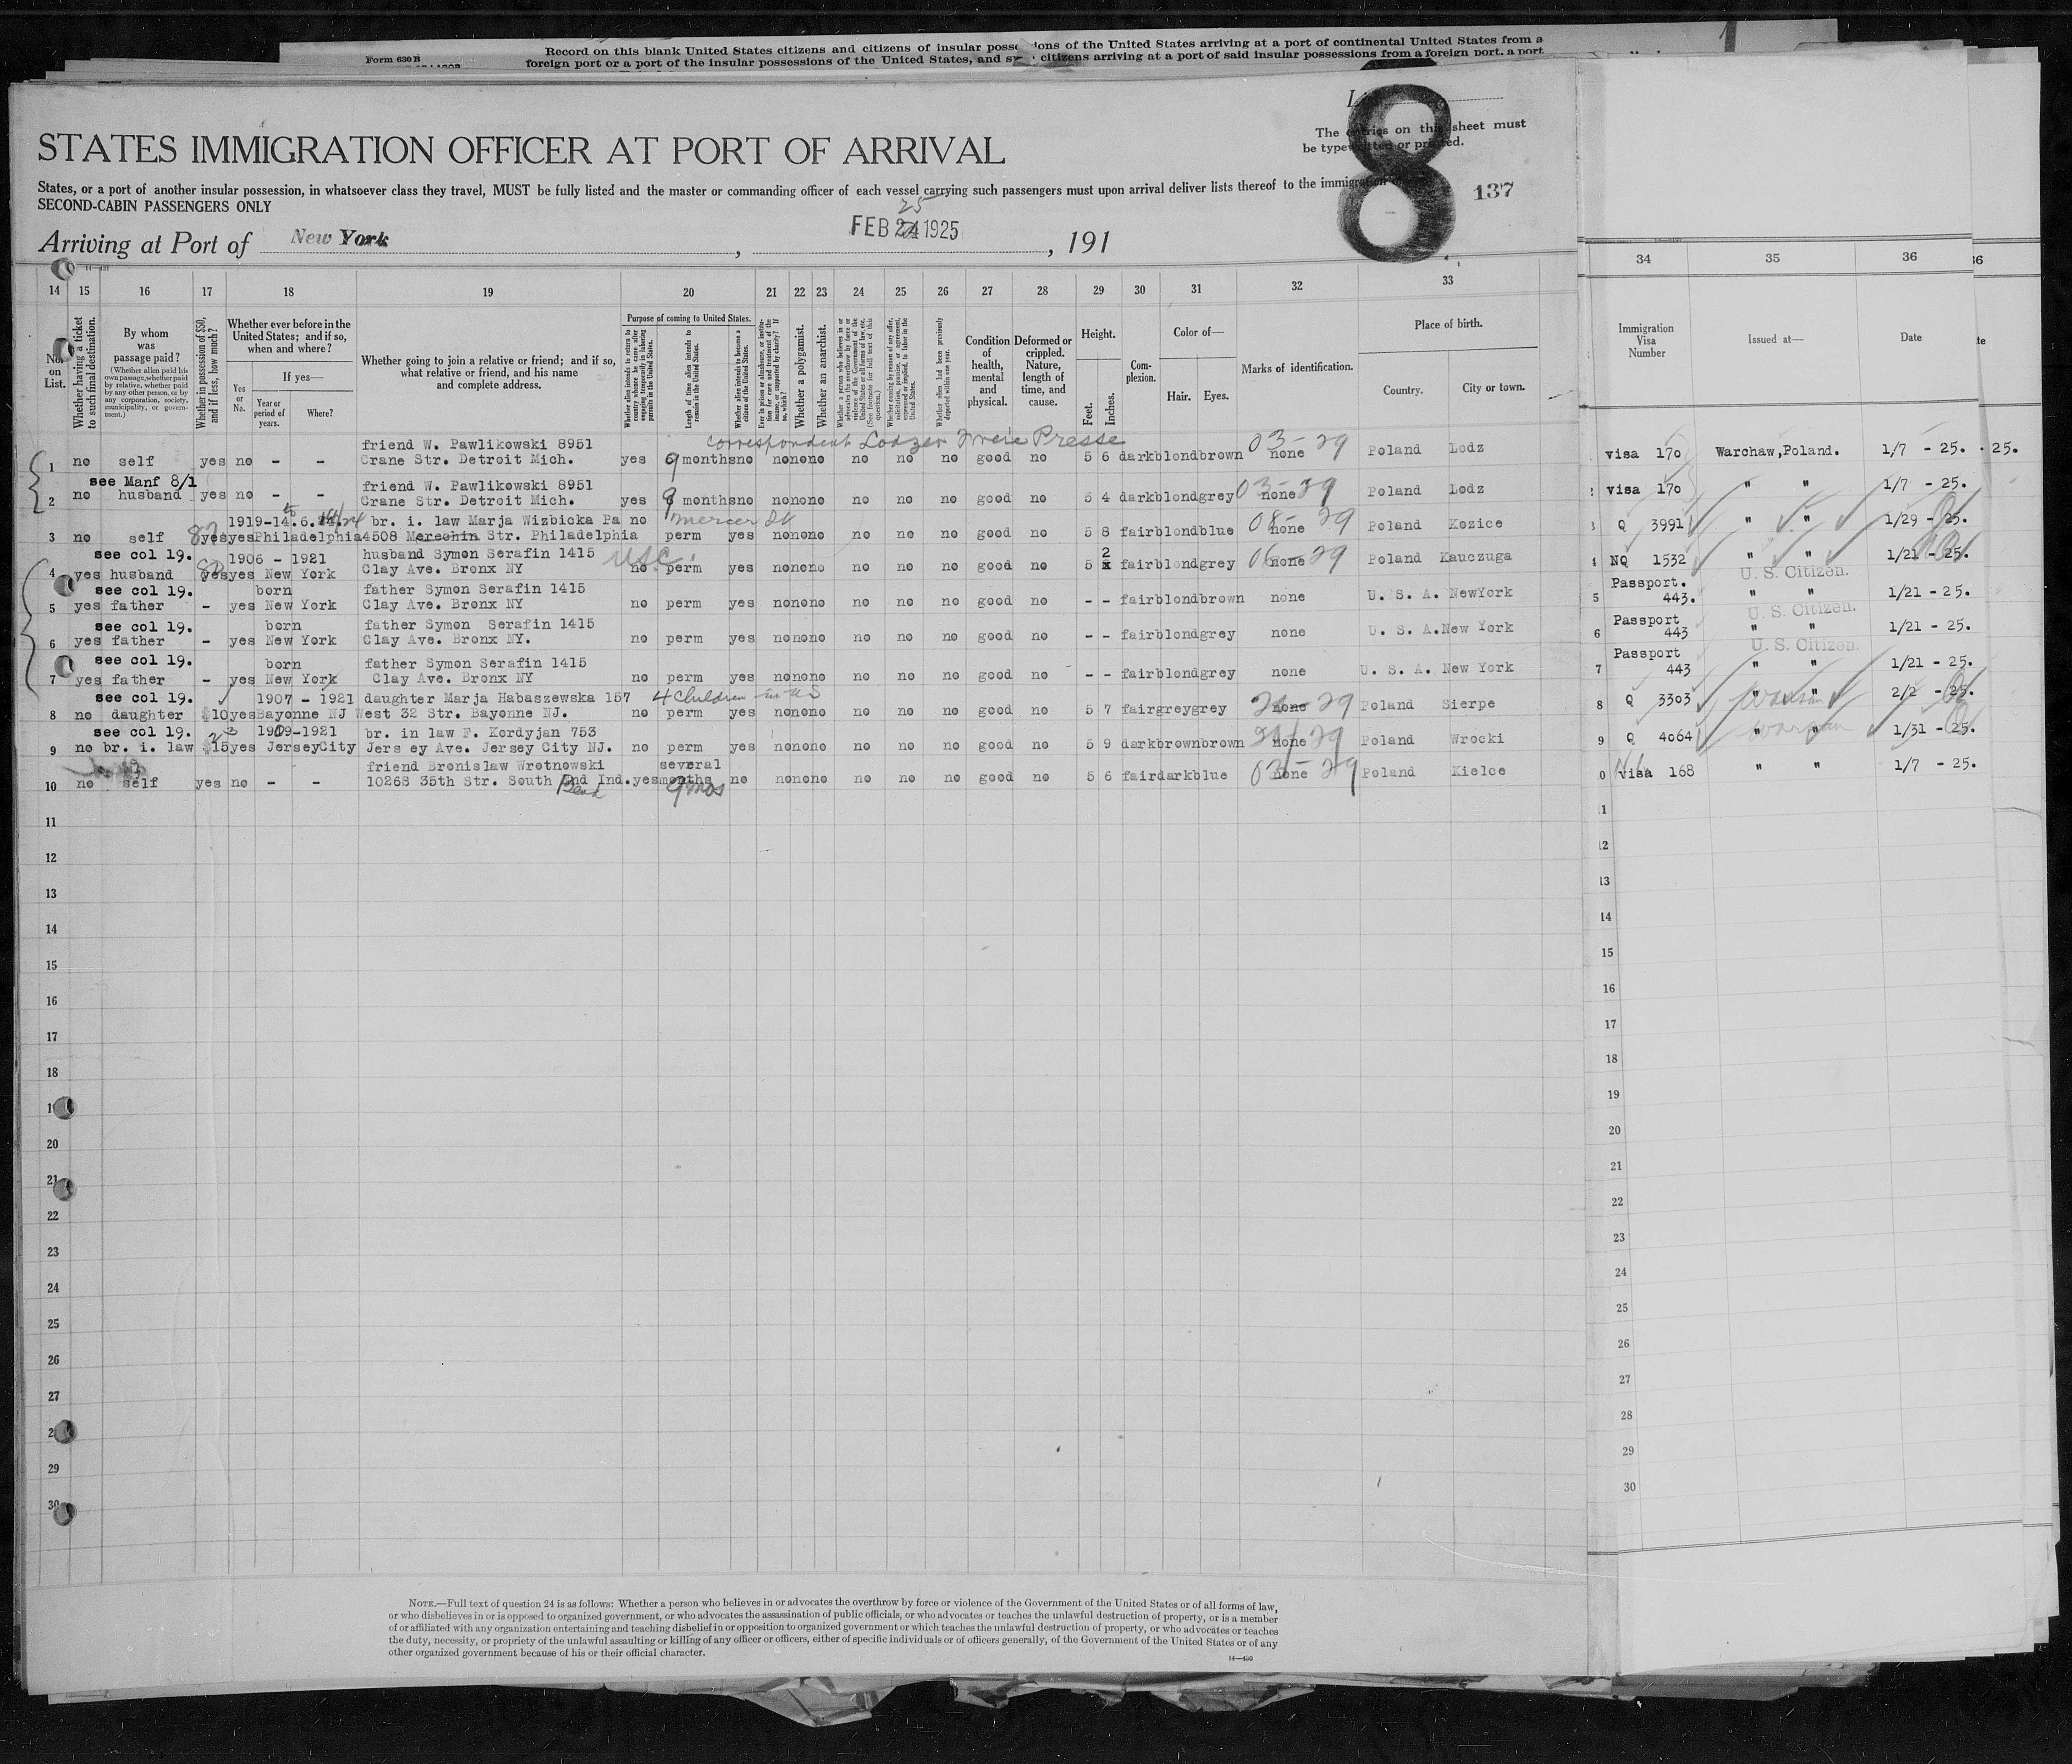 Form 630 B
Record on this blank United States citizens and citizens of insular possessions of the United States arriving at a port of continental United States from a
foreign port or a port of the insular possessions of the United States, and citizens arriving at a port of said insular possessions from a foreign port, a port
8
The entries on this sheet must
be typewritten or printed.
STATES IMMIGRATION OFFICER AT PORT OF ARRIVAL
States, or a port of another insular possession, in whatsoever class they travel, MUST be fully listed and the master or commanding officer of each vessel carrying such passengers must upon arrival deliver lists thereof to the immigration
137
SECOND-CABIN PASSENGERS ONLY
25
Arriving at Port of New York , FEB 24 1925 , 191
14 15 16 17 18 19 20 21 22 23 24 25 26 27 28 29 30 31 32 33 34 35 36
No. on List.
Whether having a ticket to such final destination.
By whom was passage paid?
(Whether alien paid his own passage, whether paid by relative, whether paid by any other person, or by any corporation, society, municipality, or government.)
Whether in possession of $50, and if less, how much?
Whether ever before in the United States; and if so, when and where?
If yes—
Yes or No.
Year or period of years.
Where?
Whether going to join a relative or friend; and if so, what relative or friend, and his name and complete address.
Purpose of coming to United States.
Whether alien intends to return to country whence he came after engaging temporarily in laboring pursuits in the United States.
Length of time alien intends to remain in the United States.
Whether alien intends to become a citizen of the United States.
Ever in prison or almshouse, or institution for care and treatment of the insane, or supported by charity? If so, which?
Whether a polygamist.
Whether an anarchist.
Condition of health, mental and physical.
Deformed or crippled. Nature, length of time, and cause.
Height.
Feet.
Inches.
Complexion.
Color of—
Hair. Eyes.
Marks of identification.
Place of birth.
Country. City or town.
Immigration Visa Number
Issued at—
Date
correspondent Lodzer Freie Presse
friend W. Pawlikowski 8951 03-29
1 no self yes no - - Crane Str. Detroit Mich. yes 9 months no no no no no no no good no 5 6 dark blond brown none Poland Lodz visa 170 Warchaw, Poland. 1/7 - 25. 25.
see Manf 8/1 friend W. Pawlikowski 8951
2 no husband yes no - - Crane Str. Detroit Mich. yes 9 months no no no no no no no good no 5 4 dark blond grey 03-29 none Poland Lodz visa 170 " " 1/7 - 25.
1919-14.6. br. i. law Marja Wizbicka Pa no Mercer St
3 no self yes yes Philadelphia 4508 Str. Philadelphia perm yes no no no no no no good no 5 8 fair blond blue 08-29 none Poland Kozice Q 3991 " " 1/29 - 25.
see col 19. 1906 - 1921 husband Symon Serafin 1415 USC. 2
4 yes husband yes yes New York Clay Ave. Bronx NY no perm yes no no no no no no good no 5 x fair blond grey 06-29 none Poland Kauczuga NQ 1532 " " 1/21 - 25.
see col 19. born father Symon Serafin 1415 Passport. U. S. Citizen.
5 yes father - yes New York Clay Ave. Bronx NY no perm yes no no no no no no good no - - fair blond brown none U. S. A. NewYork 443. " " 1/21 - 25.
see col 19. born father Symon Serafin 1415 Passport U. S. Citizen.
6 yes father - yes New York Clay Ave. Bronx NY. no perm yes no no no no no no good no - - fair blond grey none U. S. A. New York 443 " " 1/21 - 25.
see col 19. born father Symon Serafin 1415 Passport U. S. Citizen.
7 yes father - yes New York Clay Ave. Bronx NY no perm yes no no no no no no good no - - fair blond grey none U. S. A. New York 443 " " 1/21 - 25.
see col 19. 1907 - 1921 daughter Marja Habaszewska 157 4 children in US
8 no daughter $10 yes Bayonne NJ West 32 Str. Bayonne NJ. no perm yes no no no no no no good no 5 7 fair grey grey none 29 Poland Sierpe Q 3303 " " Warsaw 2/2 - 25.
see col 19. 1909-1921 br. in law F. Kordyjan 753
9 no br. i. law $15 yes JerseyCity Jers ey Ave. Jersey City NJ. no perm yes no no no no no no good no 5 9 dark brown brown none 29 Poland Wrocki Q 4064 " " Warsaw 1/31 - 25.
friend Bronislaw Wrotnowski several
10 no self yes no - - 10268 35th Str. South Bend Ind. yes months no no no no no no no good no 5 6 fair dark blue 03-29 none Poland Kielce visa 168 " " 1/7 - 25.
Bend 9 mos
11
12
13
14
15
16
17
18
19
20
21
22
23
24
25
26
27
28
29
30
NOTE.—Full text of question 24 is as follows: Whether a person who believes in or advocates the overthrow by force or violence of the Government of the United States or of all forms of law,
or who disbelieves in or is opposed to organized government, or who advocates the assassination of public officials, or who advocates or teaches the unlawful destruction of property, or is a member
of or affiliated with any organization entertaining and teaching disbelief in or opposition to organized government or which teaches the unlawful destruction of property, or who advocates or teaches
the duty, necessity, or propriety of the unlawful assaulting or killing of any officer or officers, either of specific individuals or of officers generally, of the Government of the United States or of any
other organized government because of his or their official character.
14—430